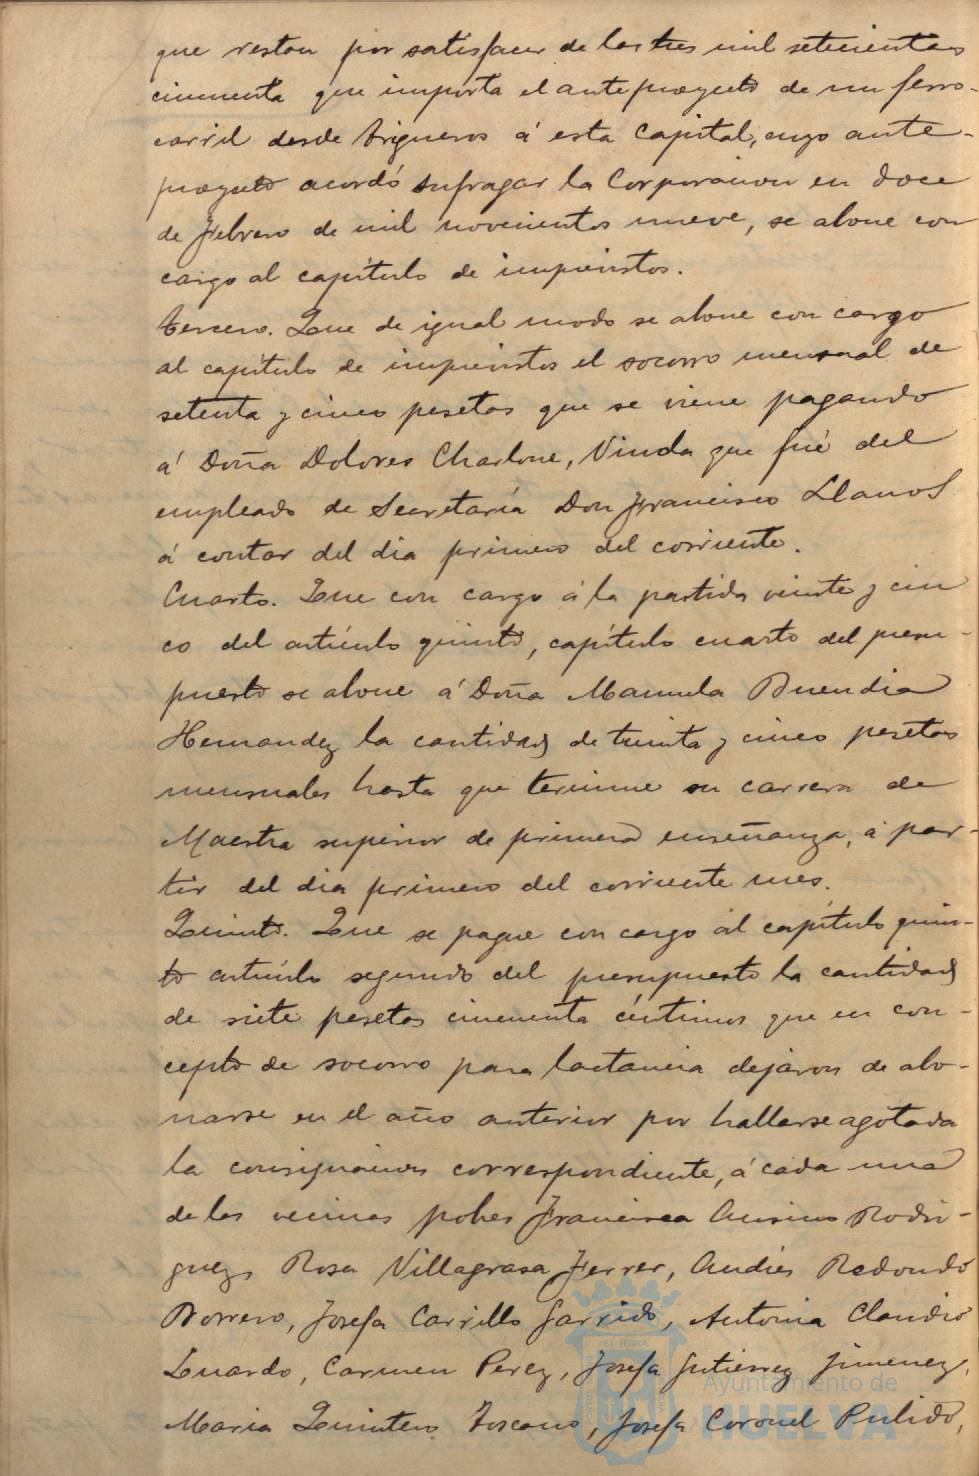 que restan por satisfacer de las tres mil setecientas
cincuenta que importa el anteproyecto de un ferro-
carril desde Trigueros á esta Capital, cuyo ante-
proyecto acordó sufragar la Corporacion en doce
de Febrero de mil novecientos nueve, se abone con
cargo al capítulo de imprevistos.
Tercero. Que de igual modo se abone con cargo
al capítulo de imprevistos el socorro mensual de
setenta y cinco pesetas que se viene pagando
á Doña Dolores Charlone, Viuda que fué del
empleado de Secretaría Don Francisco Llanos
á contar del dia primero del corriente.
Cuarto. Que con cargo á la partida veinte y cin
co del artículo quinto, capítulo cuarto del presu-
puesto se abone á Doña Manuela Buendia
Hernandez la cantidad de treinta y cinco pesetas
mensuales hasta que termine su carrera de
Maestra superior de primera enseñanza, á par-
tir del dia primero del corriente mes.
Quinto. Que se pague con cargo al capítulo quin-
to artículo segundo del presupuesto la cantidad
de siete pesetas cincuenta céntimos que en con-
cepto de socorro para lactancia dejaron de abo-
narse en el año anterior por hallarse agotada
la consignacion correspondiente, á cada una
de los vecinos pobres Francisca Rodri-
guez, Rosa Villagrasa Ferrer, Andrés Redondo
Borrero, Josefa Carrillo Garrido, Antonia Claudio
Luardo, Carmen Perez, Josefa Gutierrez Jimenez,
Maria Quintero Toscano, Josefa Coronel Pulido,
Ayuntamiento de
HUELVA